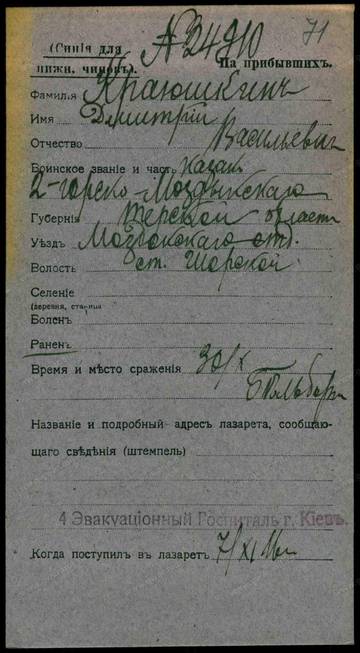 (Синія для № 34910 71
нижн. чиновъ). На прибывшихъ.
Фамилія Краюшкинъ
Имя Димитрій
Отчество Васильевич
Воинское званіе и часть казак
2-горско-Моздокскаго
Губернія Терской области
Уѣздъ Моздокскаго отд.
Волость ст.
Селеніе
(деревня, станица
Боленъ
Раненъ
Время и мѣсто сраженія 30/X
Названіе и подробный адресъ лазарета, сообщаю-
щаго свѣдѣнія (штемпель)
4 Эвакуаціонный Госпиталь г. Кіевъ.
Когда поступилъ въ лазаретъ 7/XI